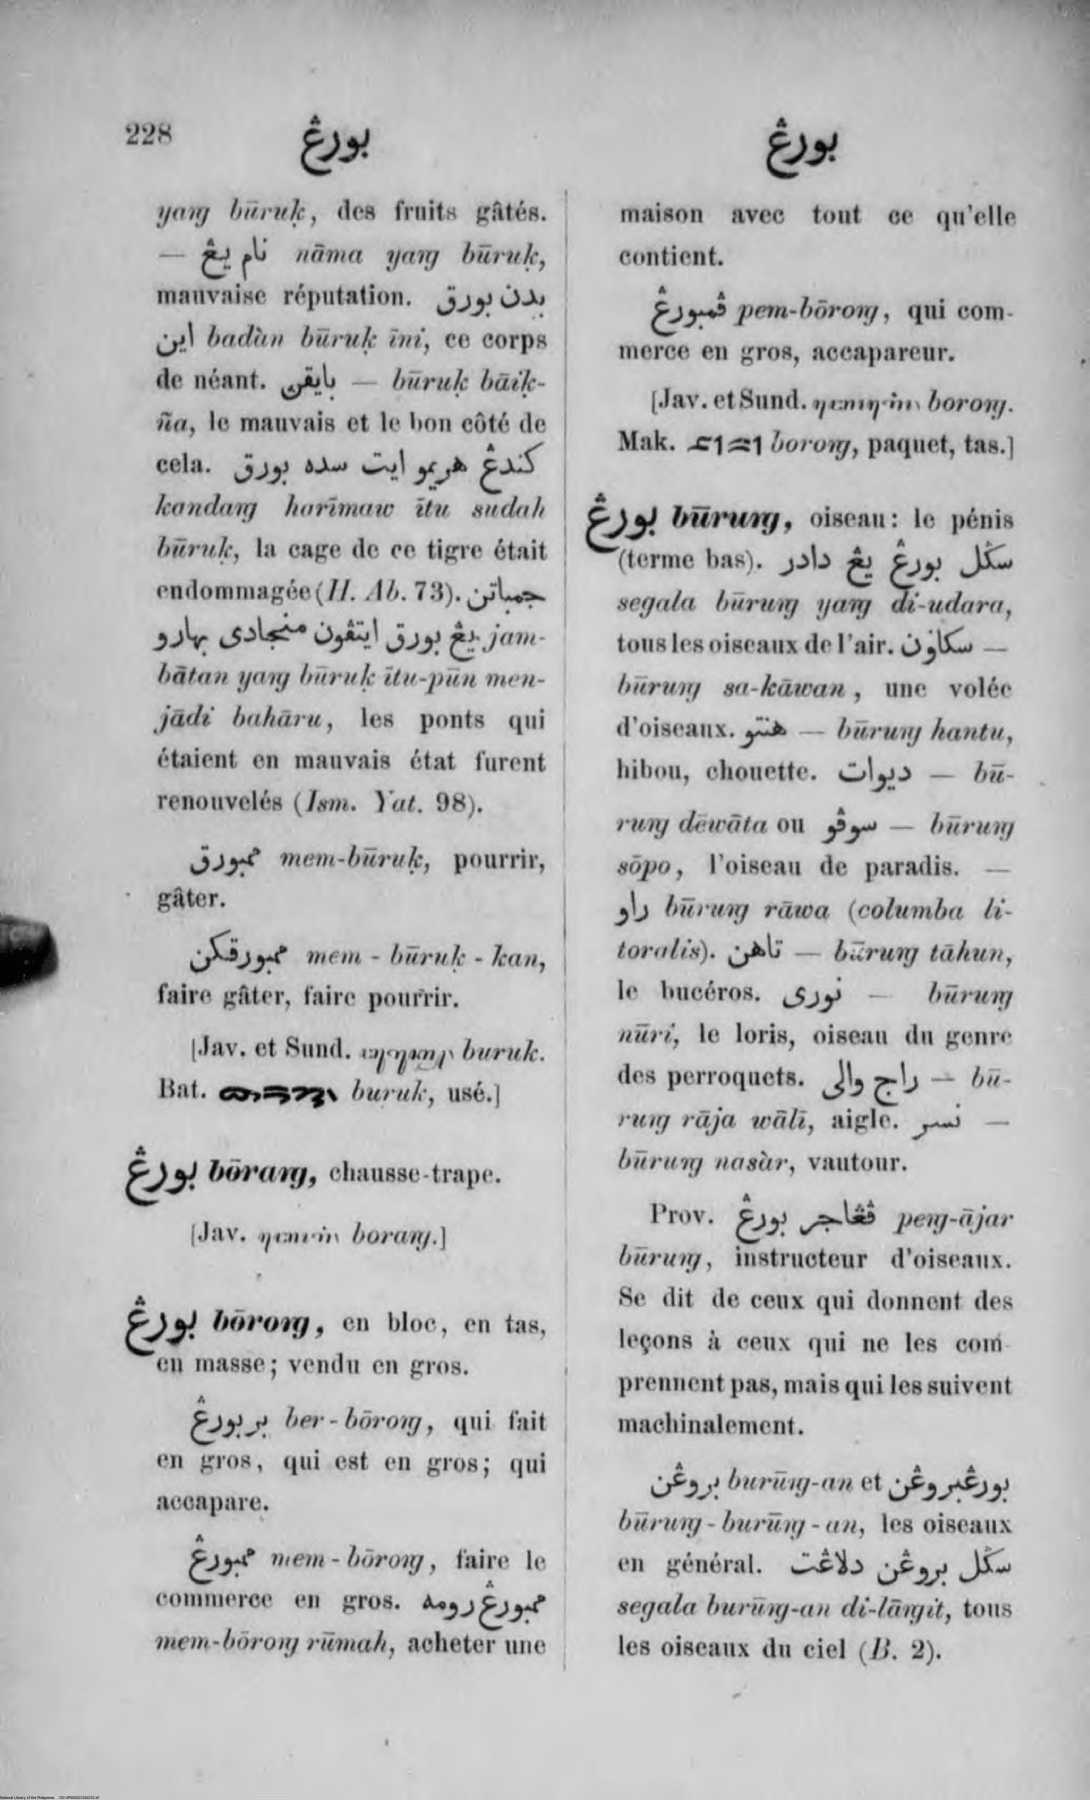 228
بورڠ
بورڠ
yaŋ būruḳ, des fruits gâtés.
— نام يڠ nāma yaŋ būruḳ,
mauvaise réputation. بدن بورق
اين badàn būruḳ īni, ce corps
de néant. بايقڽ — būruḳ bāiḳ-
ña, le mauvais et le bon côté de
cela. كندڠ هريمو ايت سده بورق
kandaŋ harīmaw ītu sudah
būruḳ, la cage de ce tigre était
endommagée (H. Ab. 73). جمباتن
يڠ بورق ايتڤون منجادى بهارو jam-
bātan yaŋ būruḳ ītu-pūn men-
jādi bahāru, les ponts qui
étaient en mauvais état furent
renouvelés (Ism. Yat. 98).
ممبورق mem-būruḳ, pourrir,
gâter.
ممبورقكن mem-būruḳ-kan,
faire gâter, faire pourrir.
[Jav. et Sund. buruk.
Bat. buruk, usé.]
بورڠ bōraŋ, chausse-trape.
[Jav. boraŋ.]
بورڠ bōroŋ, en bloc, en tas,
en masse; vendu en gros.
بربورڠ ber-bōroŋ, qui fait
en gros, qui est en gros; qui
accapare.
ممبورڠ mem-bōroŋ, faire le
commerce en gros. ممبورڠ رومه
mem-bōroŋ rūmah, acheter une
maison avec tout ce qu'elle
contient.
ڤمبورڠ pem-bōroŋ, qui com-
merce en gros, accapareur.
[Jav. et Sund. boroŋ.
Mak. boroŋ, paquet, tas.]
بورڠ būruŋ, oiseau: le pénis
(terme bas). سݢل بورڠ يڠ دادر
segala būruŋ yaŋ di-udara,
tous les oiseaux de l'air. سكاون —
būruŋ sa-kāwan, une volée
d'oiseaux. هنتو — būruŋ hantu,
hibou, chouette. ديوات — bū-
ruŋ dēwāta ou سوڤو — būruŋ
sōpo, l'oiseau de paradis. —
راو būruŋ rāwa (columba li-
toralis). تاهن — būruŋ tāhun,
le bucéros. نورى — būruŋ
nūri, le loris, oiseau du genre
des perroquets. راج والى — bū-
ruŋ rāja wālī, aigle. نسر —
būruŋ nasàr, vautour.
Prov. ڤڠاجر بورڠ peŋ-ājar
būruŋ, instructeur d'oiseaux.
Se dit de ceux qui donnent des
leçons à ceux qui ne les com-
prennent pas, mais qui les suivent
machinalement.
بروڠن burūŋ-an et بورڠبروڠن
būruŋ-burūŋ-an, les oiseaux
en général. سݢل بروڠن دلاڠت
segala burūŋ-an di-lāŋit, tous
les oiseaux du ciel (B. 2).